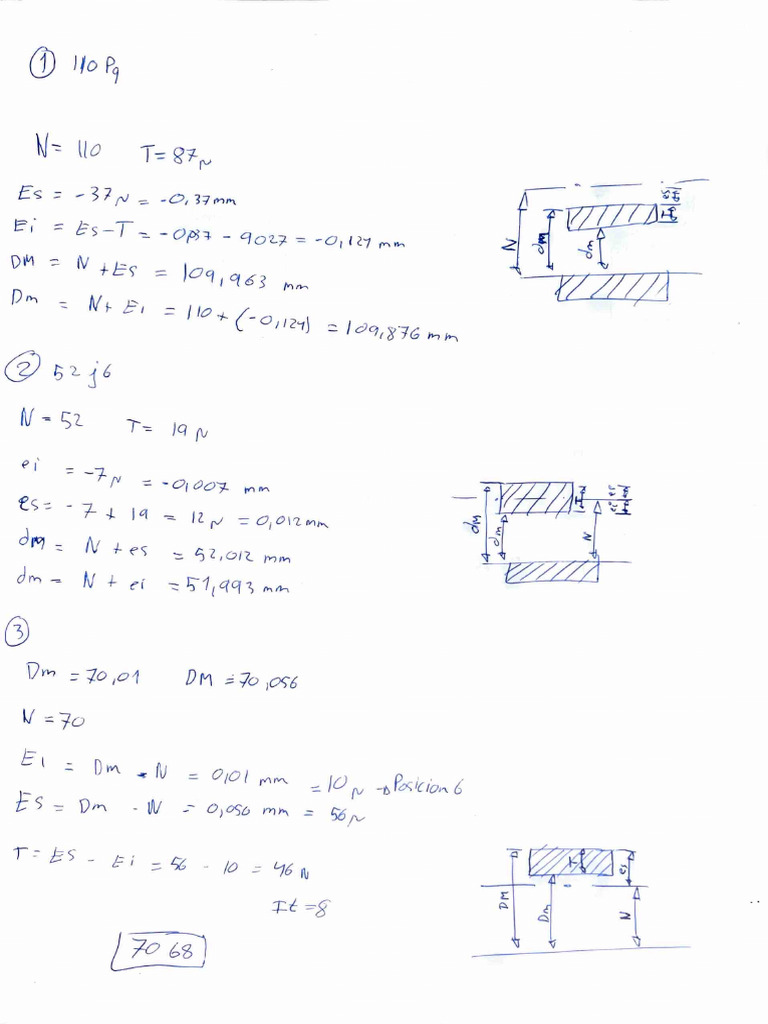 ① 110 P9
N = 110 T = 87μ
Es = -37μ = -0,37 mm
Ei = Es-T = -0,037 - 0,087 = -0,124 mm
DM = N + Es = 109,963 mm
Dm = N + Ei = 110 + (-0,124) = 109,876 mm
N dM dm T es
② 52 j6
N = 52 T = 19μ
ei = -7μ = -0,007 mm
es = -7 + 19 = 12μ = 0,012 mm
dM = N + es = 52,012 mm
dm = N + ei = 51,993 mm
dM dm T N ei es
③
Dm = 70,01 DM = 70,056
N = 70
Ei = Dm - N = 0,01 mm = 10μ → Posicion G
ES = Dm - N = 0,056 mm = 56μ
T = ES - Ei = 56 - 10 = 46μ
It = 8
70 G8
DM Dm T es N